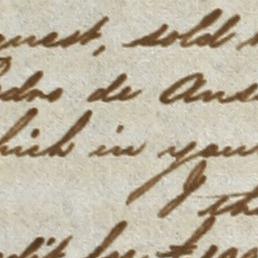 quest, sold
edro de And
hich in you
I th